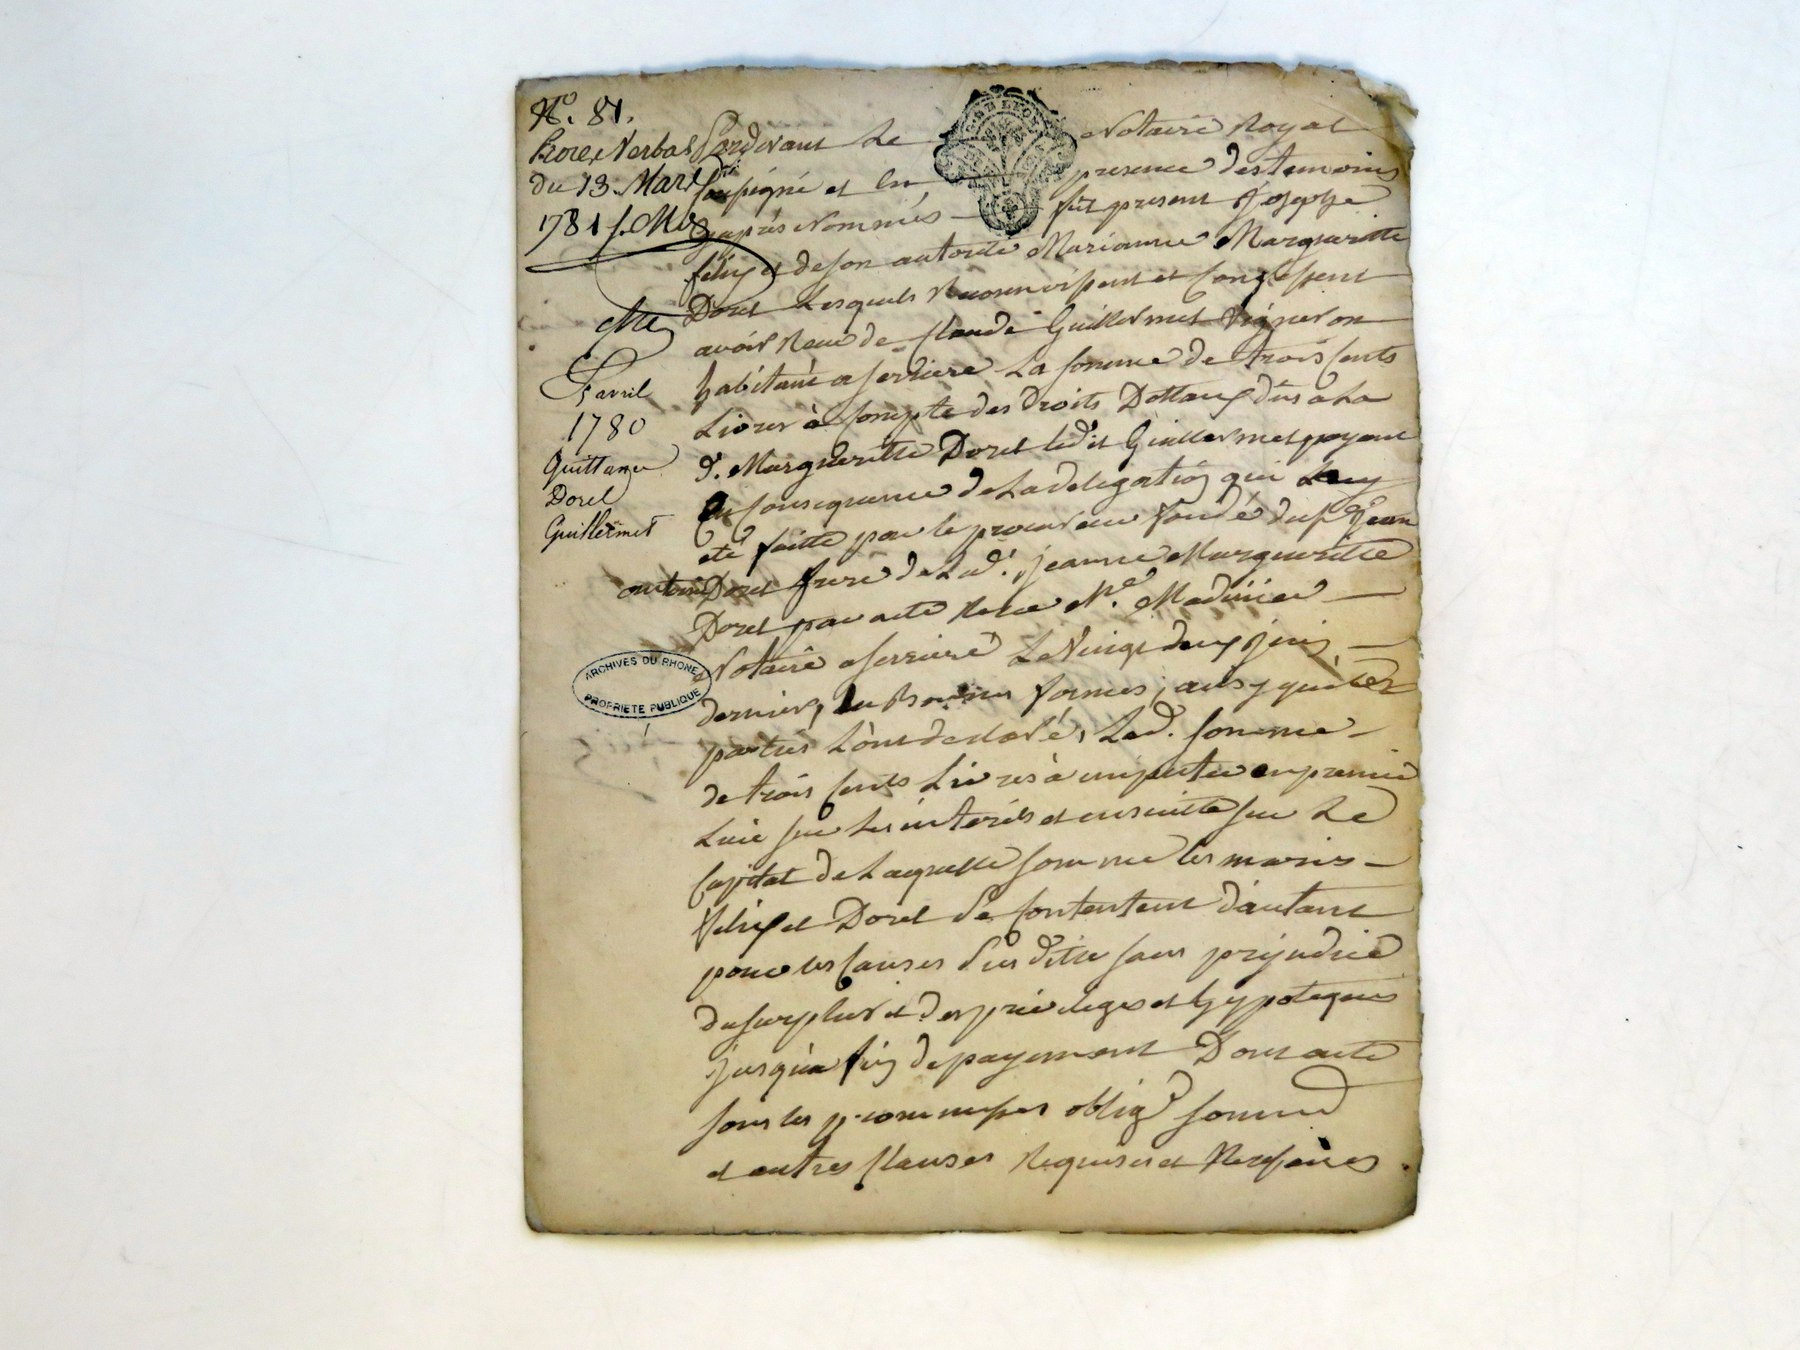 N.º 81.
Procez Verbal
du 13. Mars
1781
5 avril
1780
Quittance
Dorel
Guillermet
ARCHIVES DU RHONE
PROPRIÉTÉ PUBLIQUE
Pardevant Le Notaire Royal
soussigné et En presence des temoins
cyaprés Nommés fût present Joseph
félix et de son autorité Marianne Margueritte
Dorel Lesquels Reconnoissent et Confessent
avoir Receu de Claude Guillermet Vigneron
habitant a serriere La somme de trois Cents
Livres à Compte des droits Dottaux dûs a La
d. Margueritte Dorel led.t Guillermet payant
En Consequence de La delegation qui Luy
eté faitte par le procureur fondé du s.r Jean
antoine Dorel frere de Lad. Jeanne Margueritte
Dorel par acte Receu M.e
Notaire a serriere Le Vingt deux Juin
dernier, En Bonnes formes, ainsy que les
parties L'ont declaré, Lad. somme
de trois Cents Livres à imputer en premier
Lieu sur Les interéts et ensuitte sur Le
Capital de Laquelle somme les maries
félix et Dorel se Contentent d'autant
pour les Causes sus dites sans prejudice
du surplus et des privileges et hypoteques
jusqu'a fin de payement Dont acte
sous les promesses oblig.s
et autres Clauses Requises et Necessaires